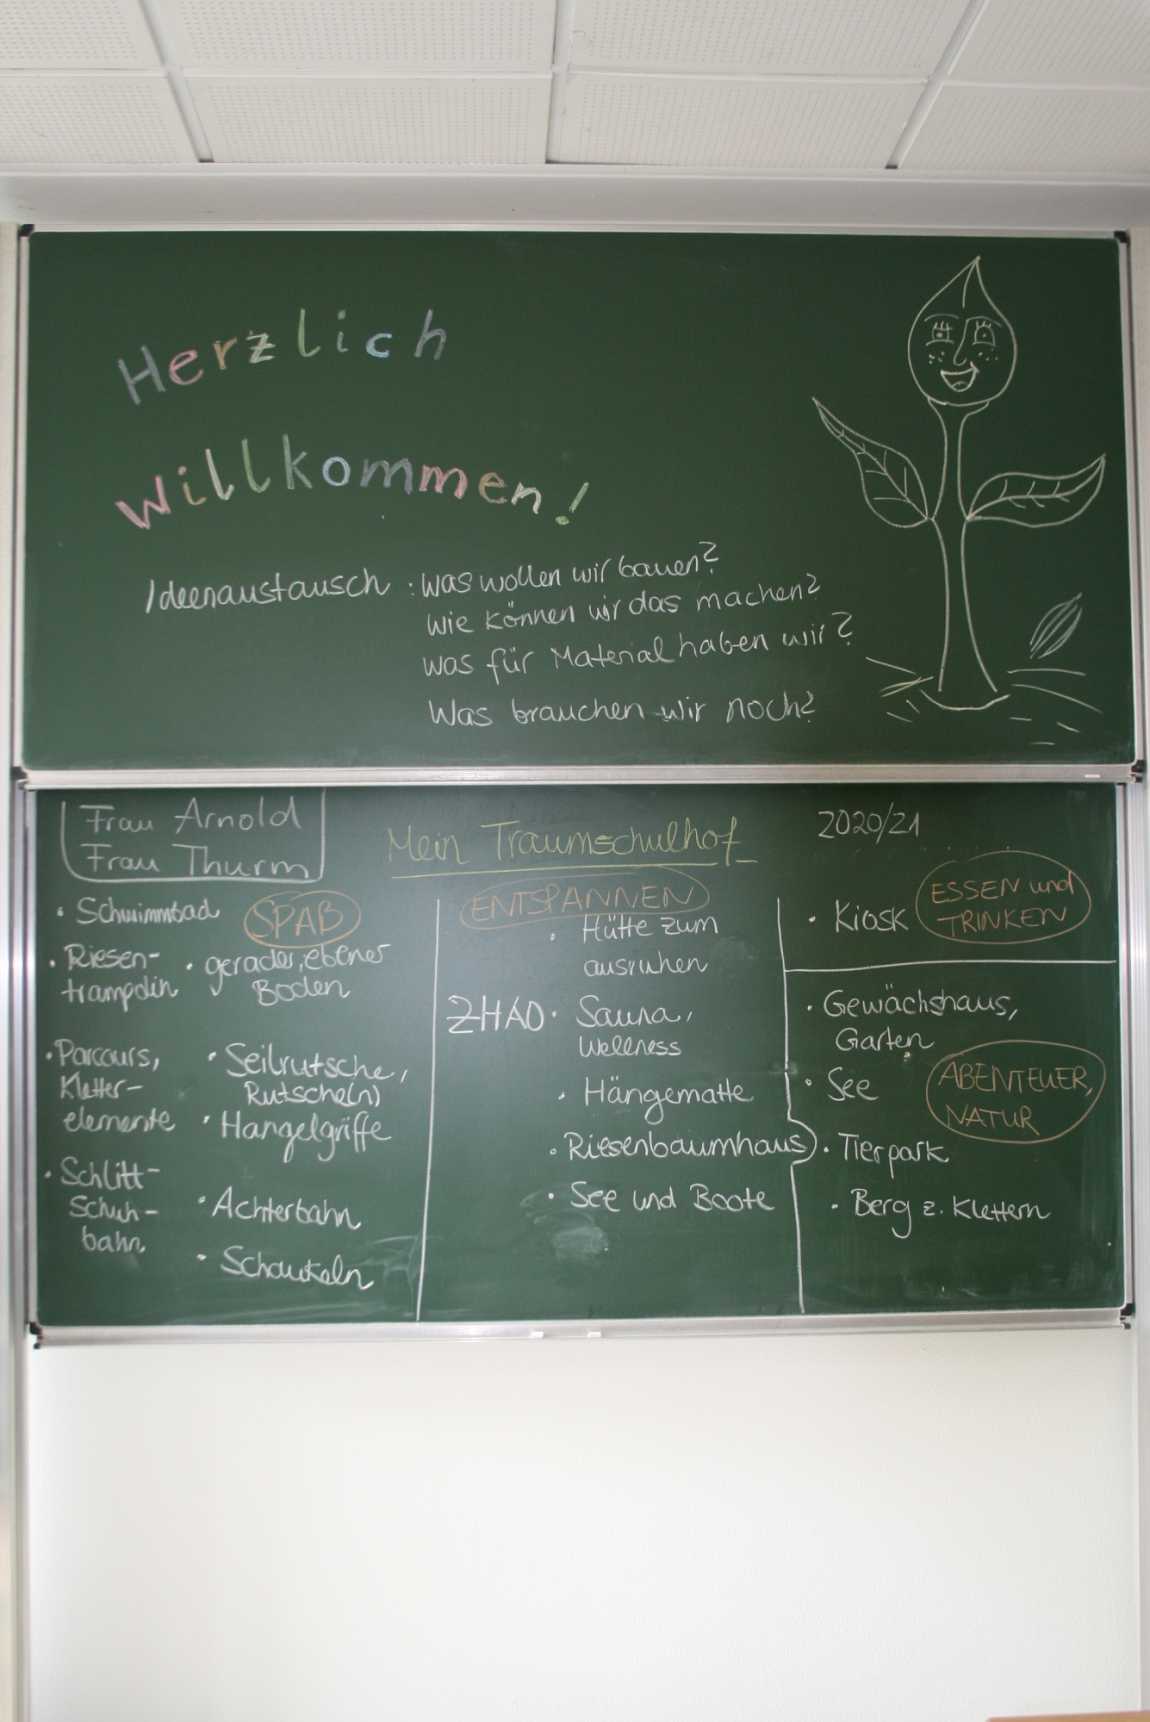 Herzlich
Willkommen!
Ideenaustausch : Was wollen wir bauen?
Wie können wir das machen?
Was für Material haben wir?
Was brauchen wir noch?
Frau Arnold
Frau Thurm
Mein Traumschulhof
2020/21
SPAß
• Schwimmbad
• Riesen-
trampolin
• gerader, ebener
Boden
• Parcours,
Kletter-
elemente
• Seilrutsche,
Rutsche(n)
• Hangelgriffe
• Schlitt-
schuh-
bahn
• Achterbahn
• Schaukeln
ENTSPANNEN
• Hütte zum
ausruhen
• Sauna,
Wellness
• Hängematte
• Riesenbaumhaus
• See und Boote
ESSEN und
TRINKEN
• Kiosk
• Gewächshaus,
Garten
ABENTEUER,
NATUR
• See
• Tierpark
• Berg z. Klettern